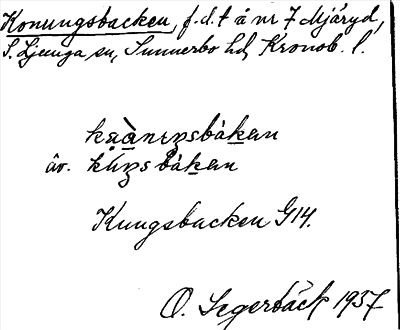 Konungsbacken, f.d. t å nr 7 Mjäryd,
S. Ljunga sn, Sunnerbo hd, Kronob. l.
äv.
Kungsbacken G14.
O. Segerbäck 1937